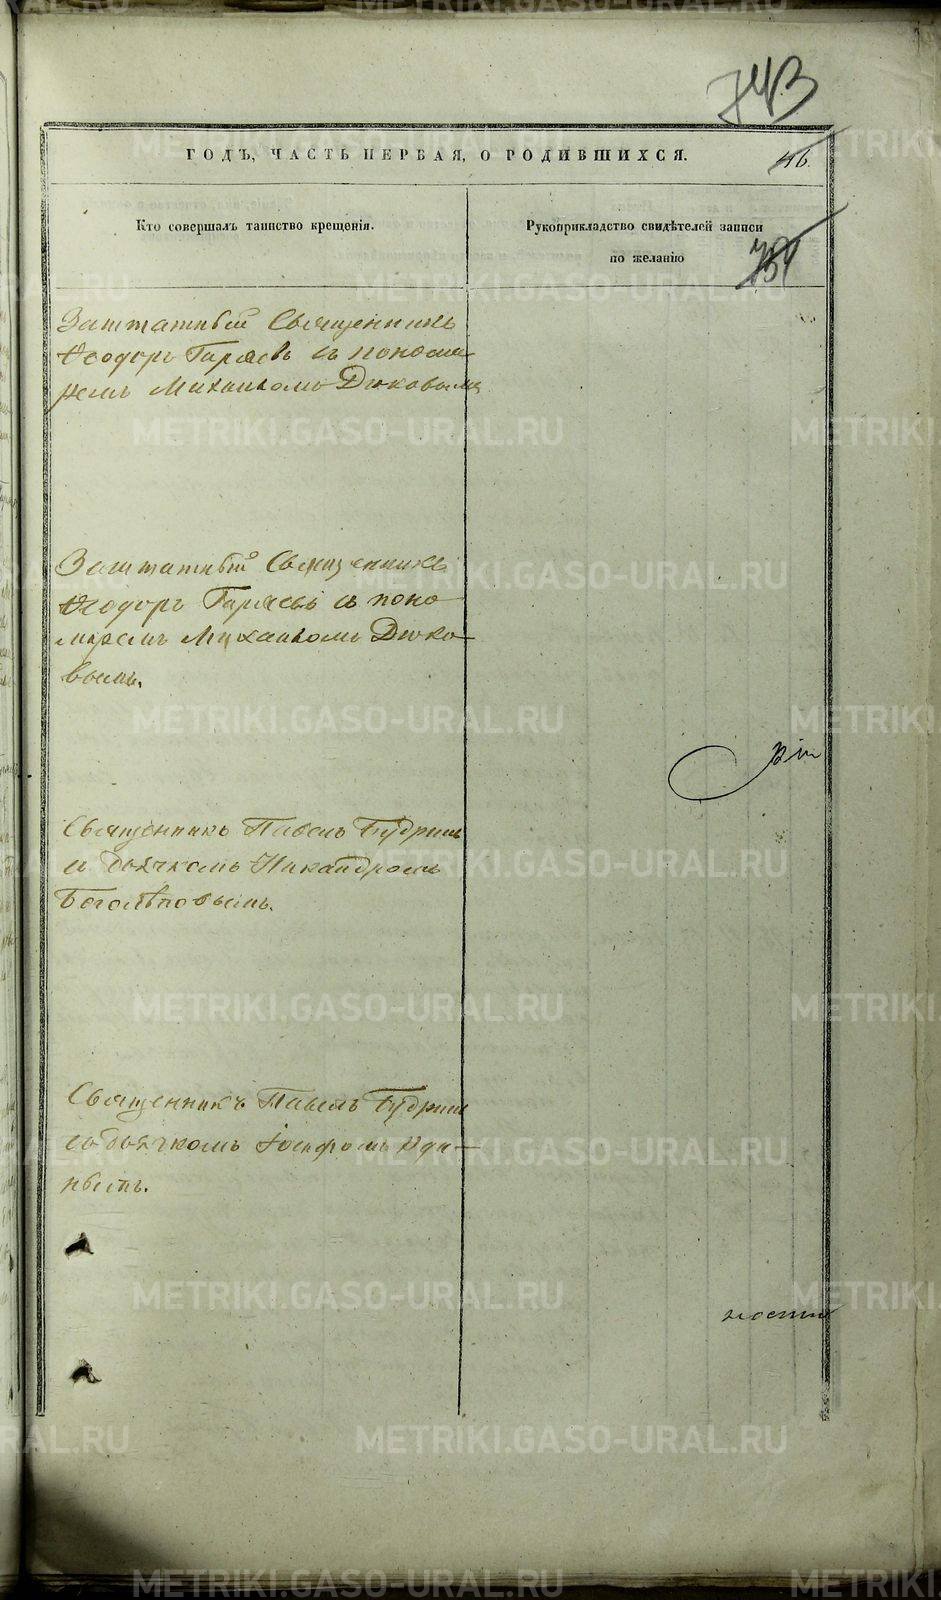 743
ГОДЪ, ЧАСТЬ ПЕРВАЯ, О РОДИВШИХСЯ.
46.
Кто совершалъ таинство крещенія.
Рукоприкладство свидѣтелей записи
по желанію
Заштатный Священникъ
Ѳеодоръ Гаряевъ съ понома
ремъ Михаиломъ Дюковымъ
Заштатный Священникъ
Ѳеодоръ Гаряевъ съ поно
маремъ Михаиломъ Дюко
вымъ.
Священникъ Павелъ Будринъ
и дьячкомъ Никандромъ
Боголѣповымъ.
Священникъ Павелъ Будринъ
съ дьячкомъ Іосифомъ
ности
METRIKI.GASO-URAL.RU